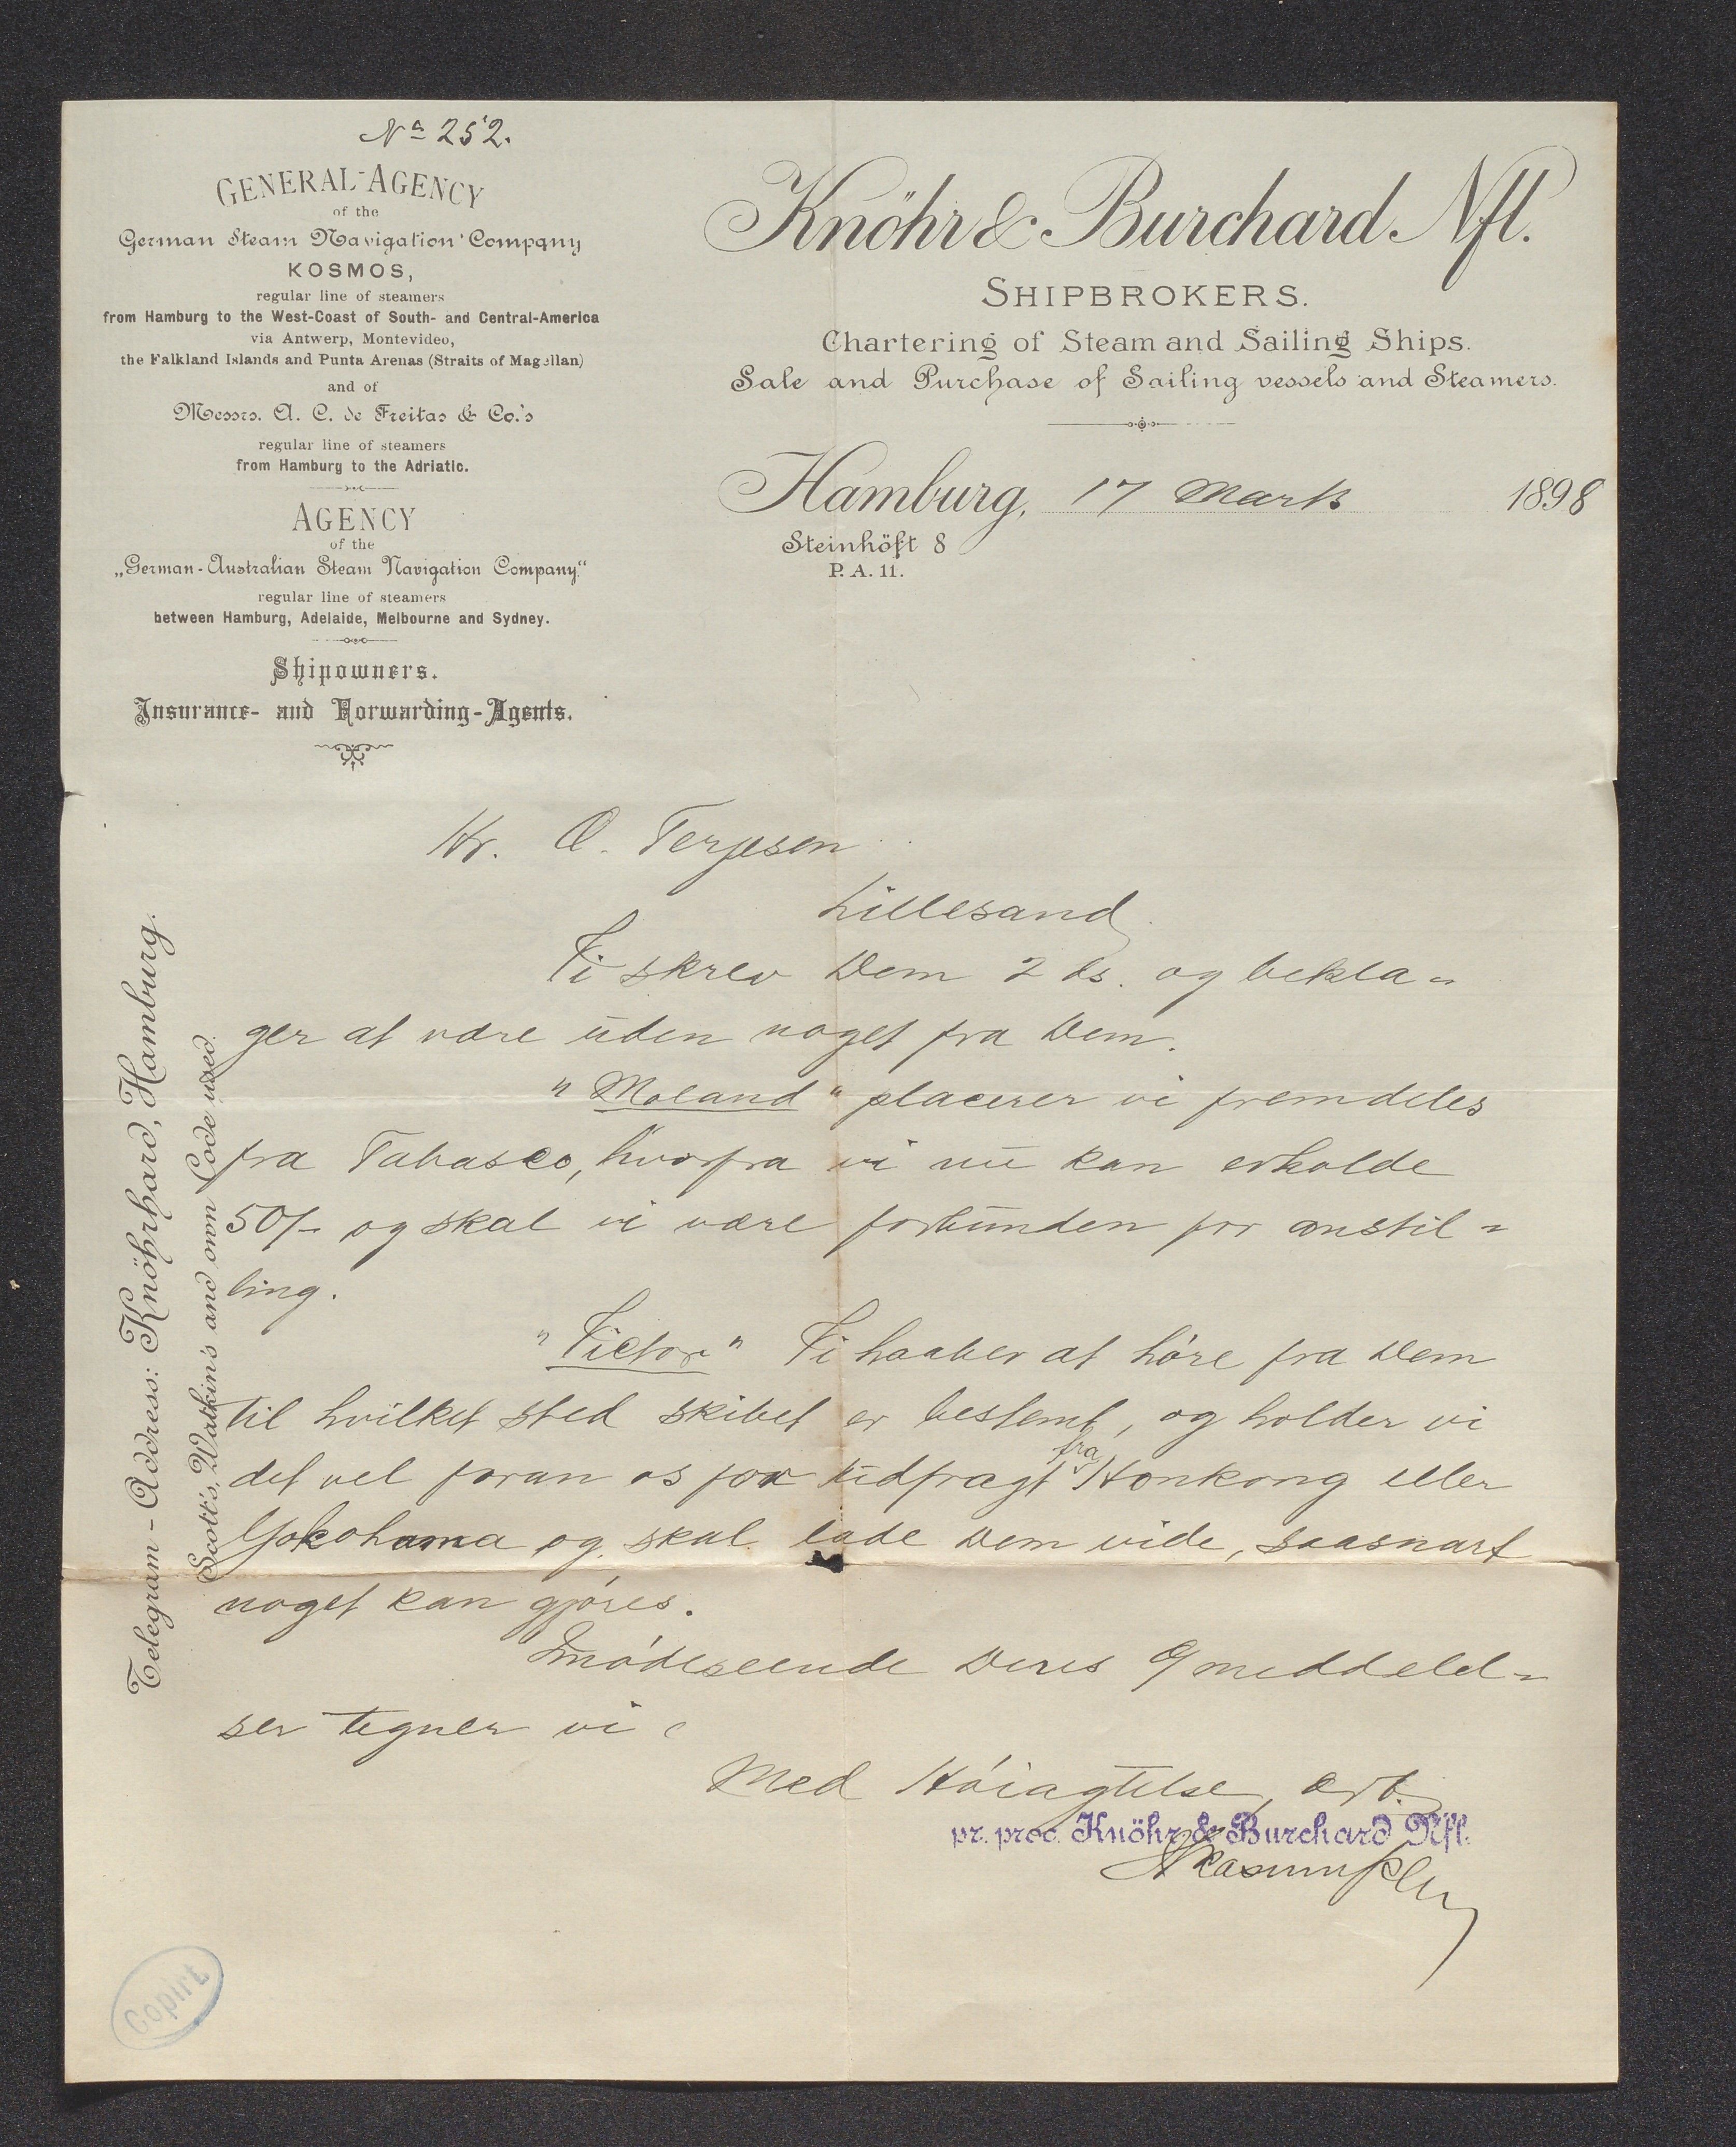 Nº 252.
GENERAL-AGENCY
of the
German Steam Navigation Company
KOSMOS,
regular line of steamers
from Hamburg to the West-Coast of South- and Central-America
via Antwerp, Montevideo,
the Falkland Islands and Punta Arenas (Straits of Magellan)
and of
Messrs. A. C. de Freitas & Co.'s
regular line of steamers
from Hamburg to the Adriatic.
AGENCY
of the
„German-Australian Steam Navigation Company"
regular line of steamers
between Hamburg, Adelaide, Melbourne and Sydney.
Shipowners.
Insurance- and Forwarding-Agents.
Knöhr & Burchard Nfl.
SHIPBROKERS.
Chartering of Steam and Sailing Ships.
Sale and Purchase of Sailing vessels and Steamers.
Hamburg, 17 Marts 1898
Steinhöft 8
P. A. 11.
Telegram-Address: Knöhrhard, Hamburg.
Scott's, Watkin's and own Code used.
Hr. O. Terjesen
Lillesand
Vi skrev Dem 2 ds. og bekla=
ger at være uden noget fra Dem.
"Moland" placerer vi fremdeles
fra Tabasco, hvorfra vi nu kan erholde
50/- og skal vi være forbunden for anstil=
ling.
"Victor" Vi haaber at höre fra Dem
til hvilket sted skibet er bestemt, og holder vi
det vel foran os for udfragt fra Honkong eller
Yokohama og skal lade Dem vide, saasnart
noget kan gjöres.
Imödeseende Deres meddelel=
ser tegner vi
Med Höiagtelse, ærb.
pr. proc. Knöhr & Burchard Nfl.
Copirt